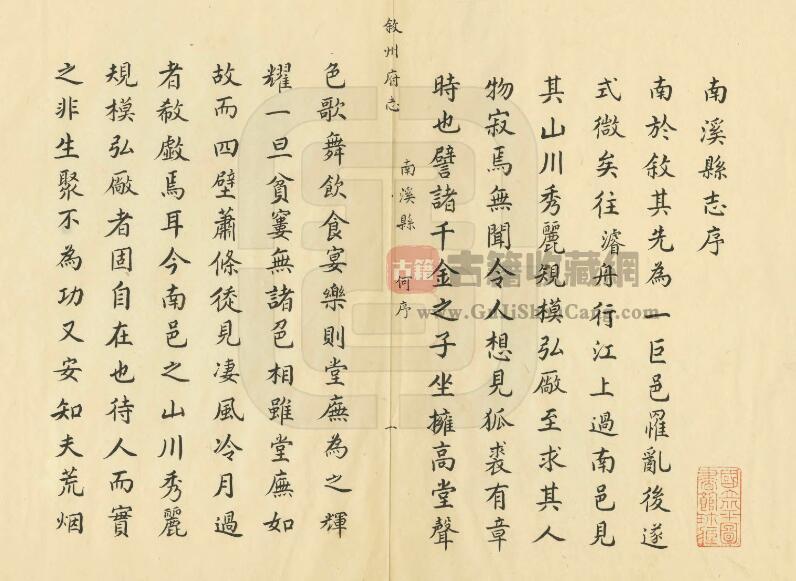 南溪縣志序
南於敘其先為一巨邑罹亂後遂
式微矣往濬舟行江上過南邑見
其山川秀麗規模弘厰至求其人
物寂焉無聞令人想見狐裘有章
時也譬諸千金之子坐擁高堂聲
敘州府志
南溪縣
何序
一
色歌舞飲食宴樂則堂廡為之輝
耀一旦貧窶無諸色相雖堂廡如
故而四壁蕭條徒見凄風冷月過
者欷歔焉耳今南邑之山川秀麗
規模弘厰者固自在也待人而實
之非生聚不為功又安知夫荒烟
古籍
古籍收藏網
www.GuJiShouCang.com